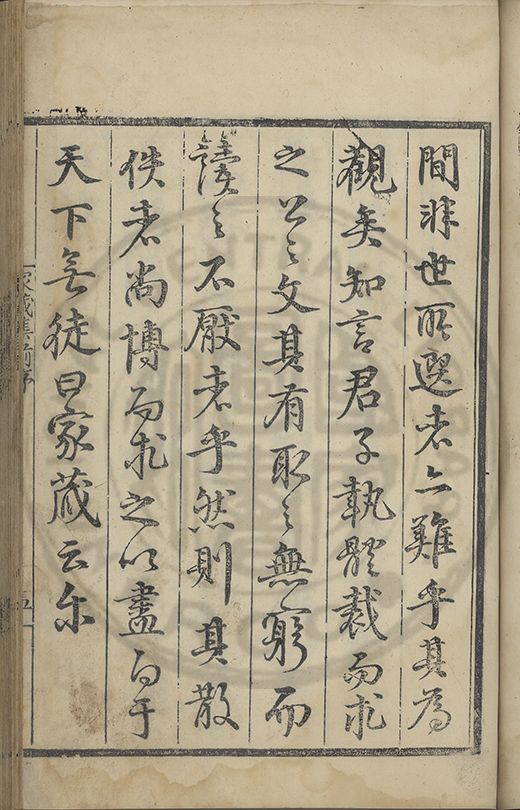 間非世所選者亦難乎其為
觀矣知言君子執體裁而求
之公之文其有取之無窮而
讀之不厭者乎然則其散
佚者尚博而求之以盡布于
天下無徒曰家藏云尔
家藏集前序
五